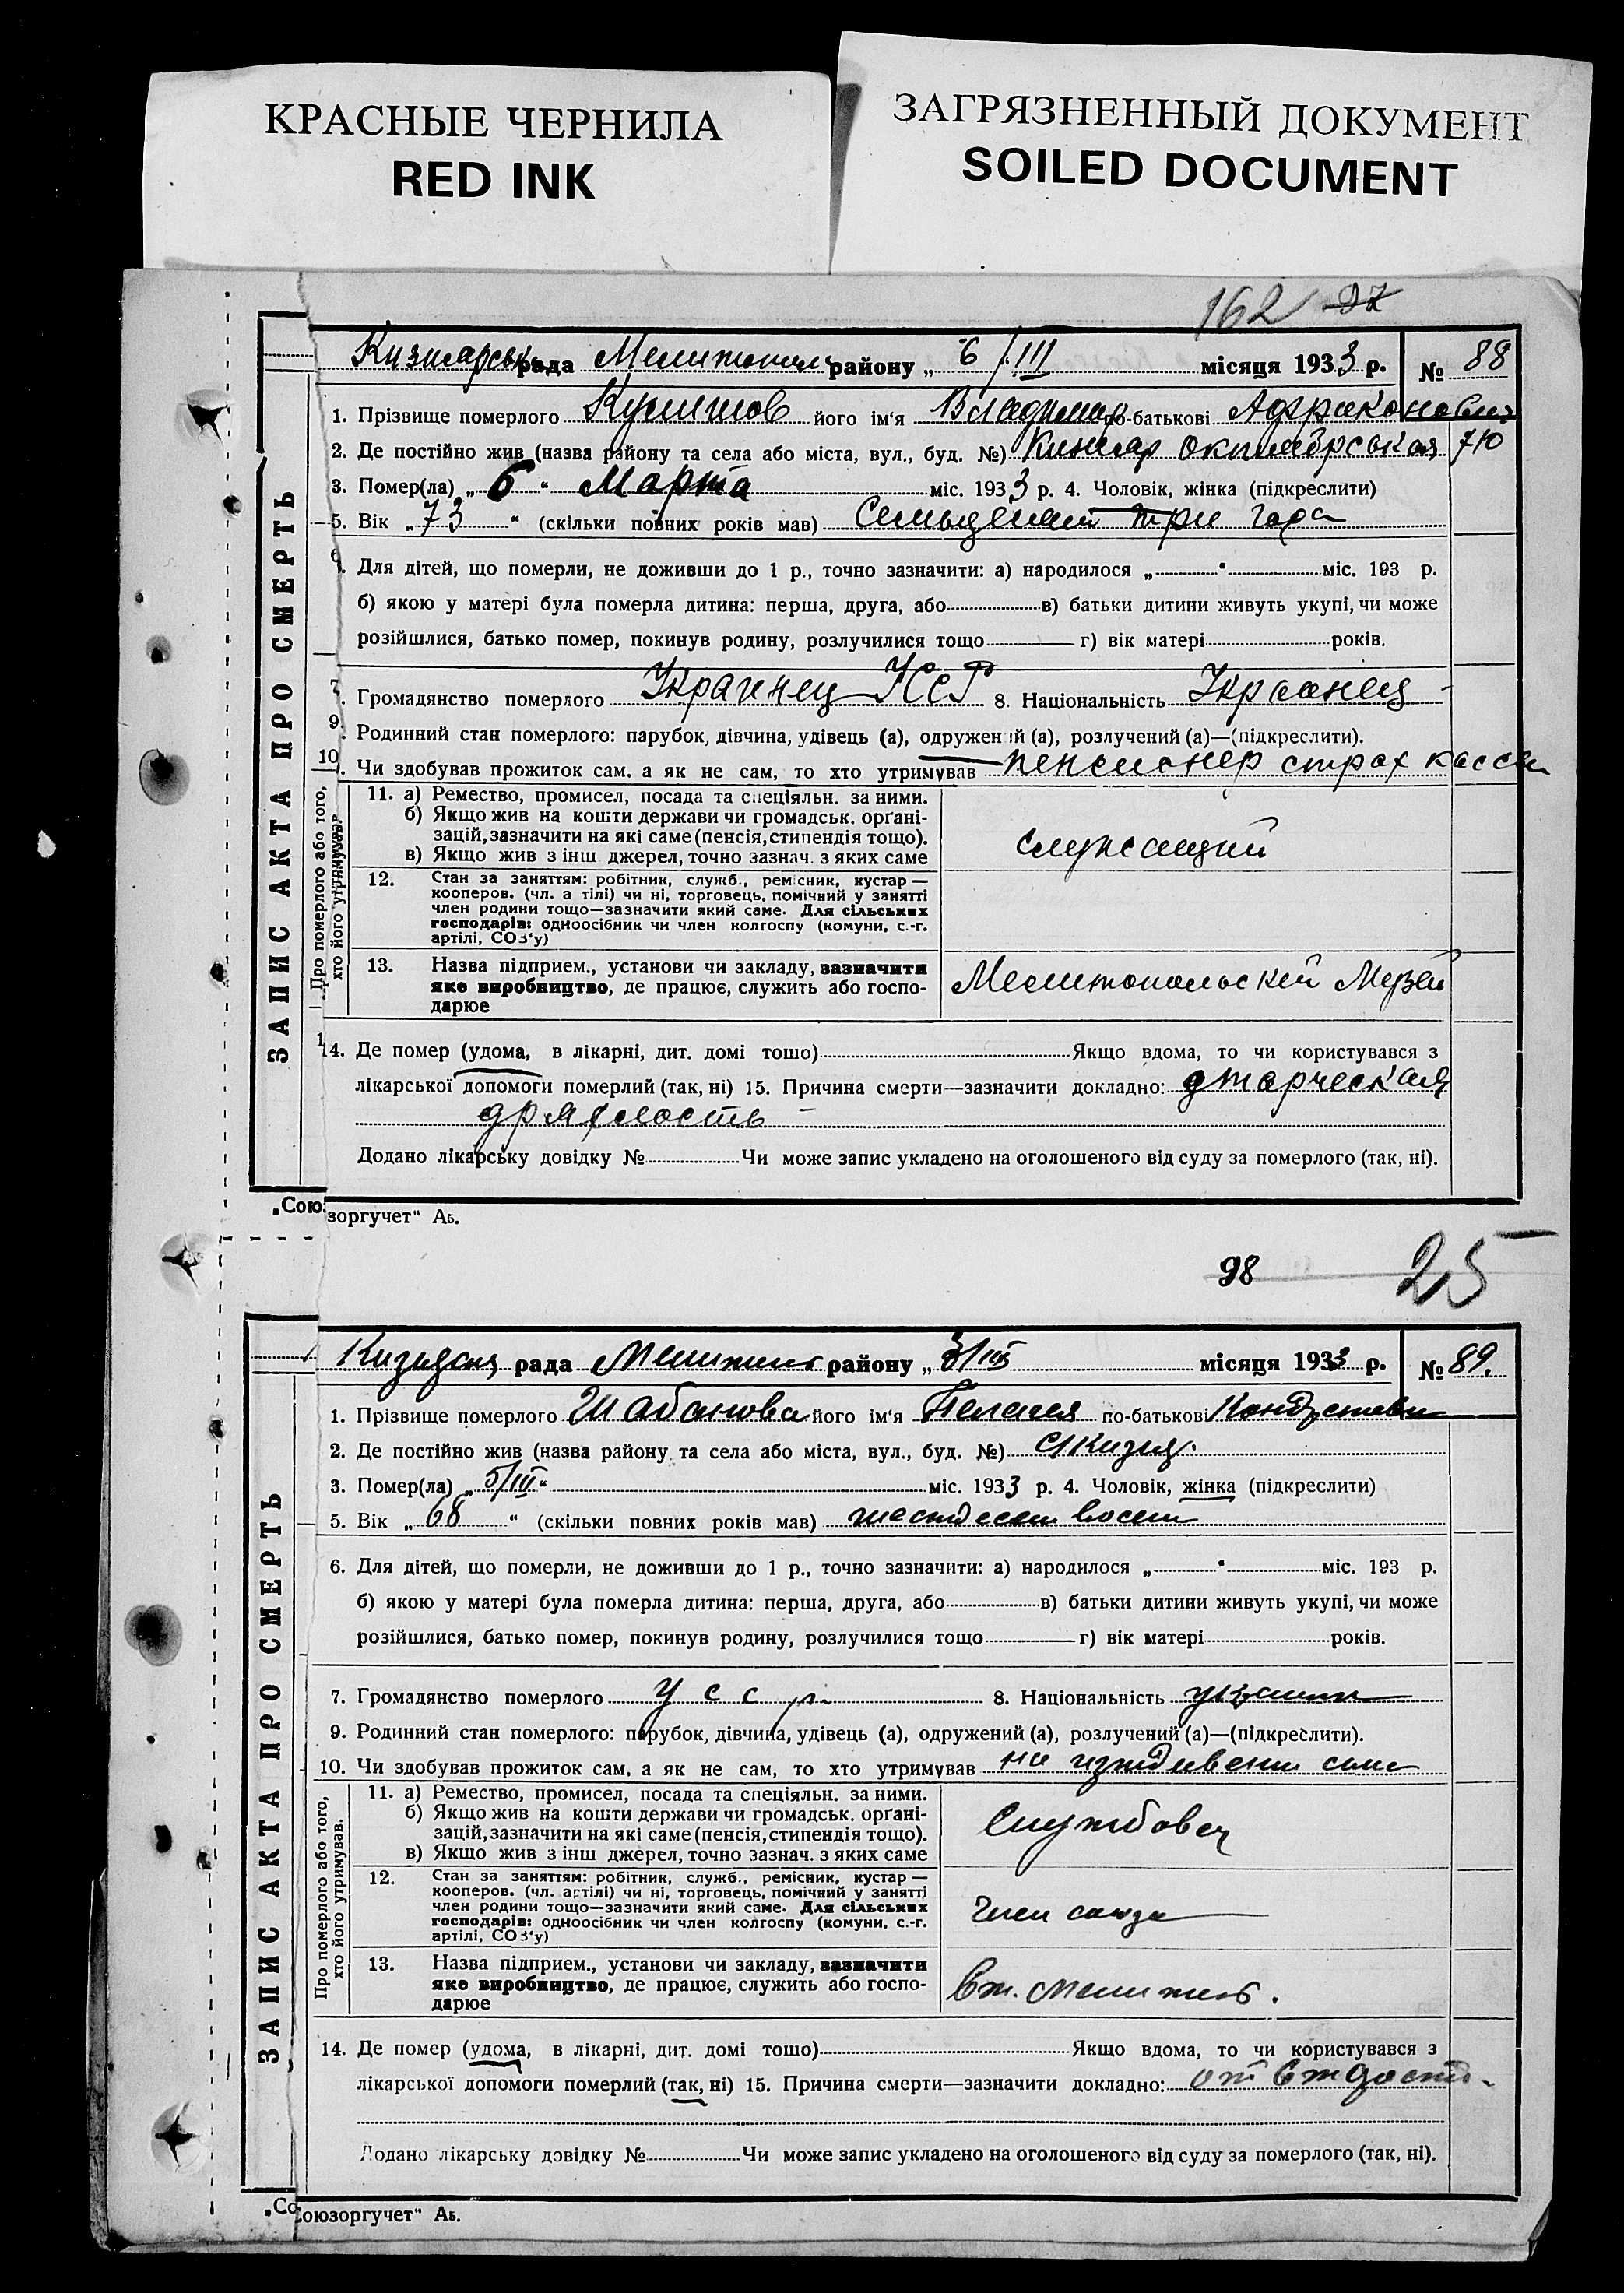 КРАСНЫЕ ЧЕРНИЛА
RED INK
ЗАГРЯЗНЕННЫЙ ДОКУМЕНТ
SOILED DOCUMENT
162
ЗАПИС АКТА ПРО СМЕРТЬ
рада району „6/III місяця 1933 р. № 88
1. Прізвище померлого його ім'я Владимир по-батькові
2. Де постійно жив (назва району та села або міста, вул., буд. №)
3. Помер(ла) „6“ Марта міс. 1933 р. 4. Чоловік, жінка (підкреслити)
5. Вік „73“ (скільки повних років мав) Семьдесят три года
6. Для дітей, що померли, не доживши до 1 р., точно зазначити: а) народилося „ “ міс. 193 р.
б) якою у матері була померла дитина: перша, друга, або в) батьки дитини живуть укупі, чи може
розійшлися, батько помер, покинув родину, розлучилися тощо г) вік матері років.
7. Громадянство померлого Украинец 8. Національність Украинец
9. Родинний стан померлого: парубок, дівчина, удівець (а), одружений (а), розлучений (а)—(підкреслити).
10. Чи здобував прожиток сам, а як не сам, то хто утримував пенсионер страх кассы
Про померлого або того, хто його утримував
11. а) Ремество, промисел, посада та спеціяльн. за ними.
б) Якщо жив на кошти держави чи громадськ. орґані-
зацій, зазначити на які саме (пенсія, стипендія тощо).
в) Якщо жив з інш джерел, точно зазнач. з яких саме
служащий
12. Стан за заняттям: робітник, служб., ремісник, кустар —
кооперов. (чл. а тілі) чи ні, торговець, помічний у занятті
член родини тощо—зазначити який саме. Для сільських
господарів: одноосібник чи член колгоспу (комуни, с.-г.
артілі, СОЗ'у)
13. Назва підприєм., установи чи закладу, зазначити
яке виробництво, де працює, служить або госпо-
дарює
Мелитопольский Музей
14. Де помер (удома, в лікарні, дит. домі тощо) Якщо вдома, то чи користувався з
лікарської допомоги померлий (так, ні) 15. Причина смерти—зазначити докладно: старческая
дряхлость
Додано лікарську довідку № Чи може запис укладено на оголошеного від суду за померлого (так, ні).
„Союзоргучет“ А5.
98 25
ЗАПИС АКТА ПРО СМЕРТЬ
рада району місяця 1933 р. № 89.
1. Прізвище померлого Шабанова його ім'я Пелагея по-батькові
2. Де постійно жив (назва району та села або міста, вул., буд. №)
3. Помер(ла) „5/III“ міс. 1933 р. 4. Чоловік, жінка (підкреслити)
5. Вік „68“ (скільки повних років мав) шестдесят восем
6. Для дітей, що померли, не доживши до 1 р., точно зазначити: а) народилося „ “ міс. 193 р.
б) якою у матері була померла дитина: перша, друга, або в) батьки дитини живуть укупі, чи може
розійшлися, батько помер, покинув родину, розлучилися тощо г) вік матері років.
7. Громадянство померлого усср 8. Національність
9. Родинний стан померлого: парубок, дівчина, удівець (а), одружений (а), розлучений (а)—(підкреслити).
10. Чи здобував прожиток сам, а як не сам, то хто утримував на
Про померлого або того, хто його утримував.
11. а) Ремество, промисел, посада та спеціяльн. за ними.
б) Якщо жив на кошти держави чи громадськ. орґані-
зацій, зазначити на які саме (пенсія, стипендія тощо).
в) Якщо жив з інш джерел, точно зазнач. з яких саме
Службовец
12. Стан за заняттям: робітник, служб., ремісник, кустар —
кооперов. (чл. артілі) чи ні, торговець, помічний у занятті
член родини тощо—зазначити який саме. Для сільських
господарів: одноосібник чи член колгоспу (комуни, с.-г.
артілі, СОЗ'у)
член союза
13. Назва підприєм., установи чи закладу, зазначити
яке виробництво, де працює, служить або госпо-
дарює
14. Де помер (удома, в лікарні, дит. домі тощо) Якщо вдома, то чи користувався з
лікарської допомоги померлий (так, ні) 15. Причина смерти—зазначити докладно: от
Додано лікарську довідку № Чи може запис укладено на оголошеного від суду за померлого (так, ні).
„Союзоргучет“ А5.